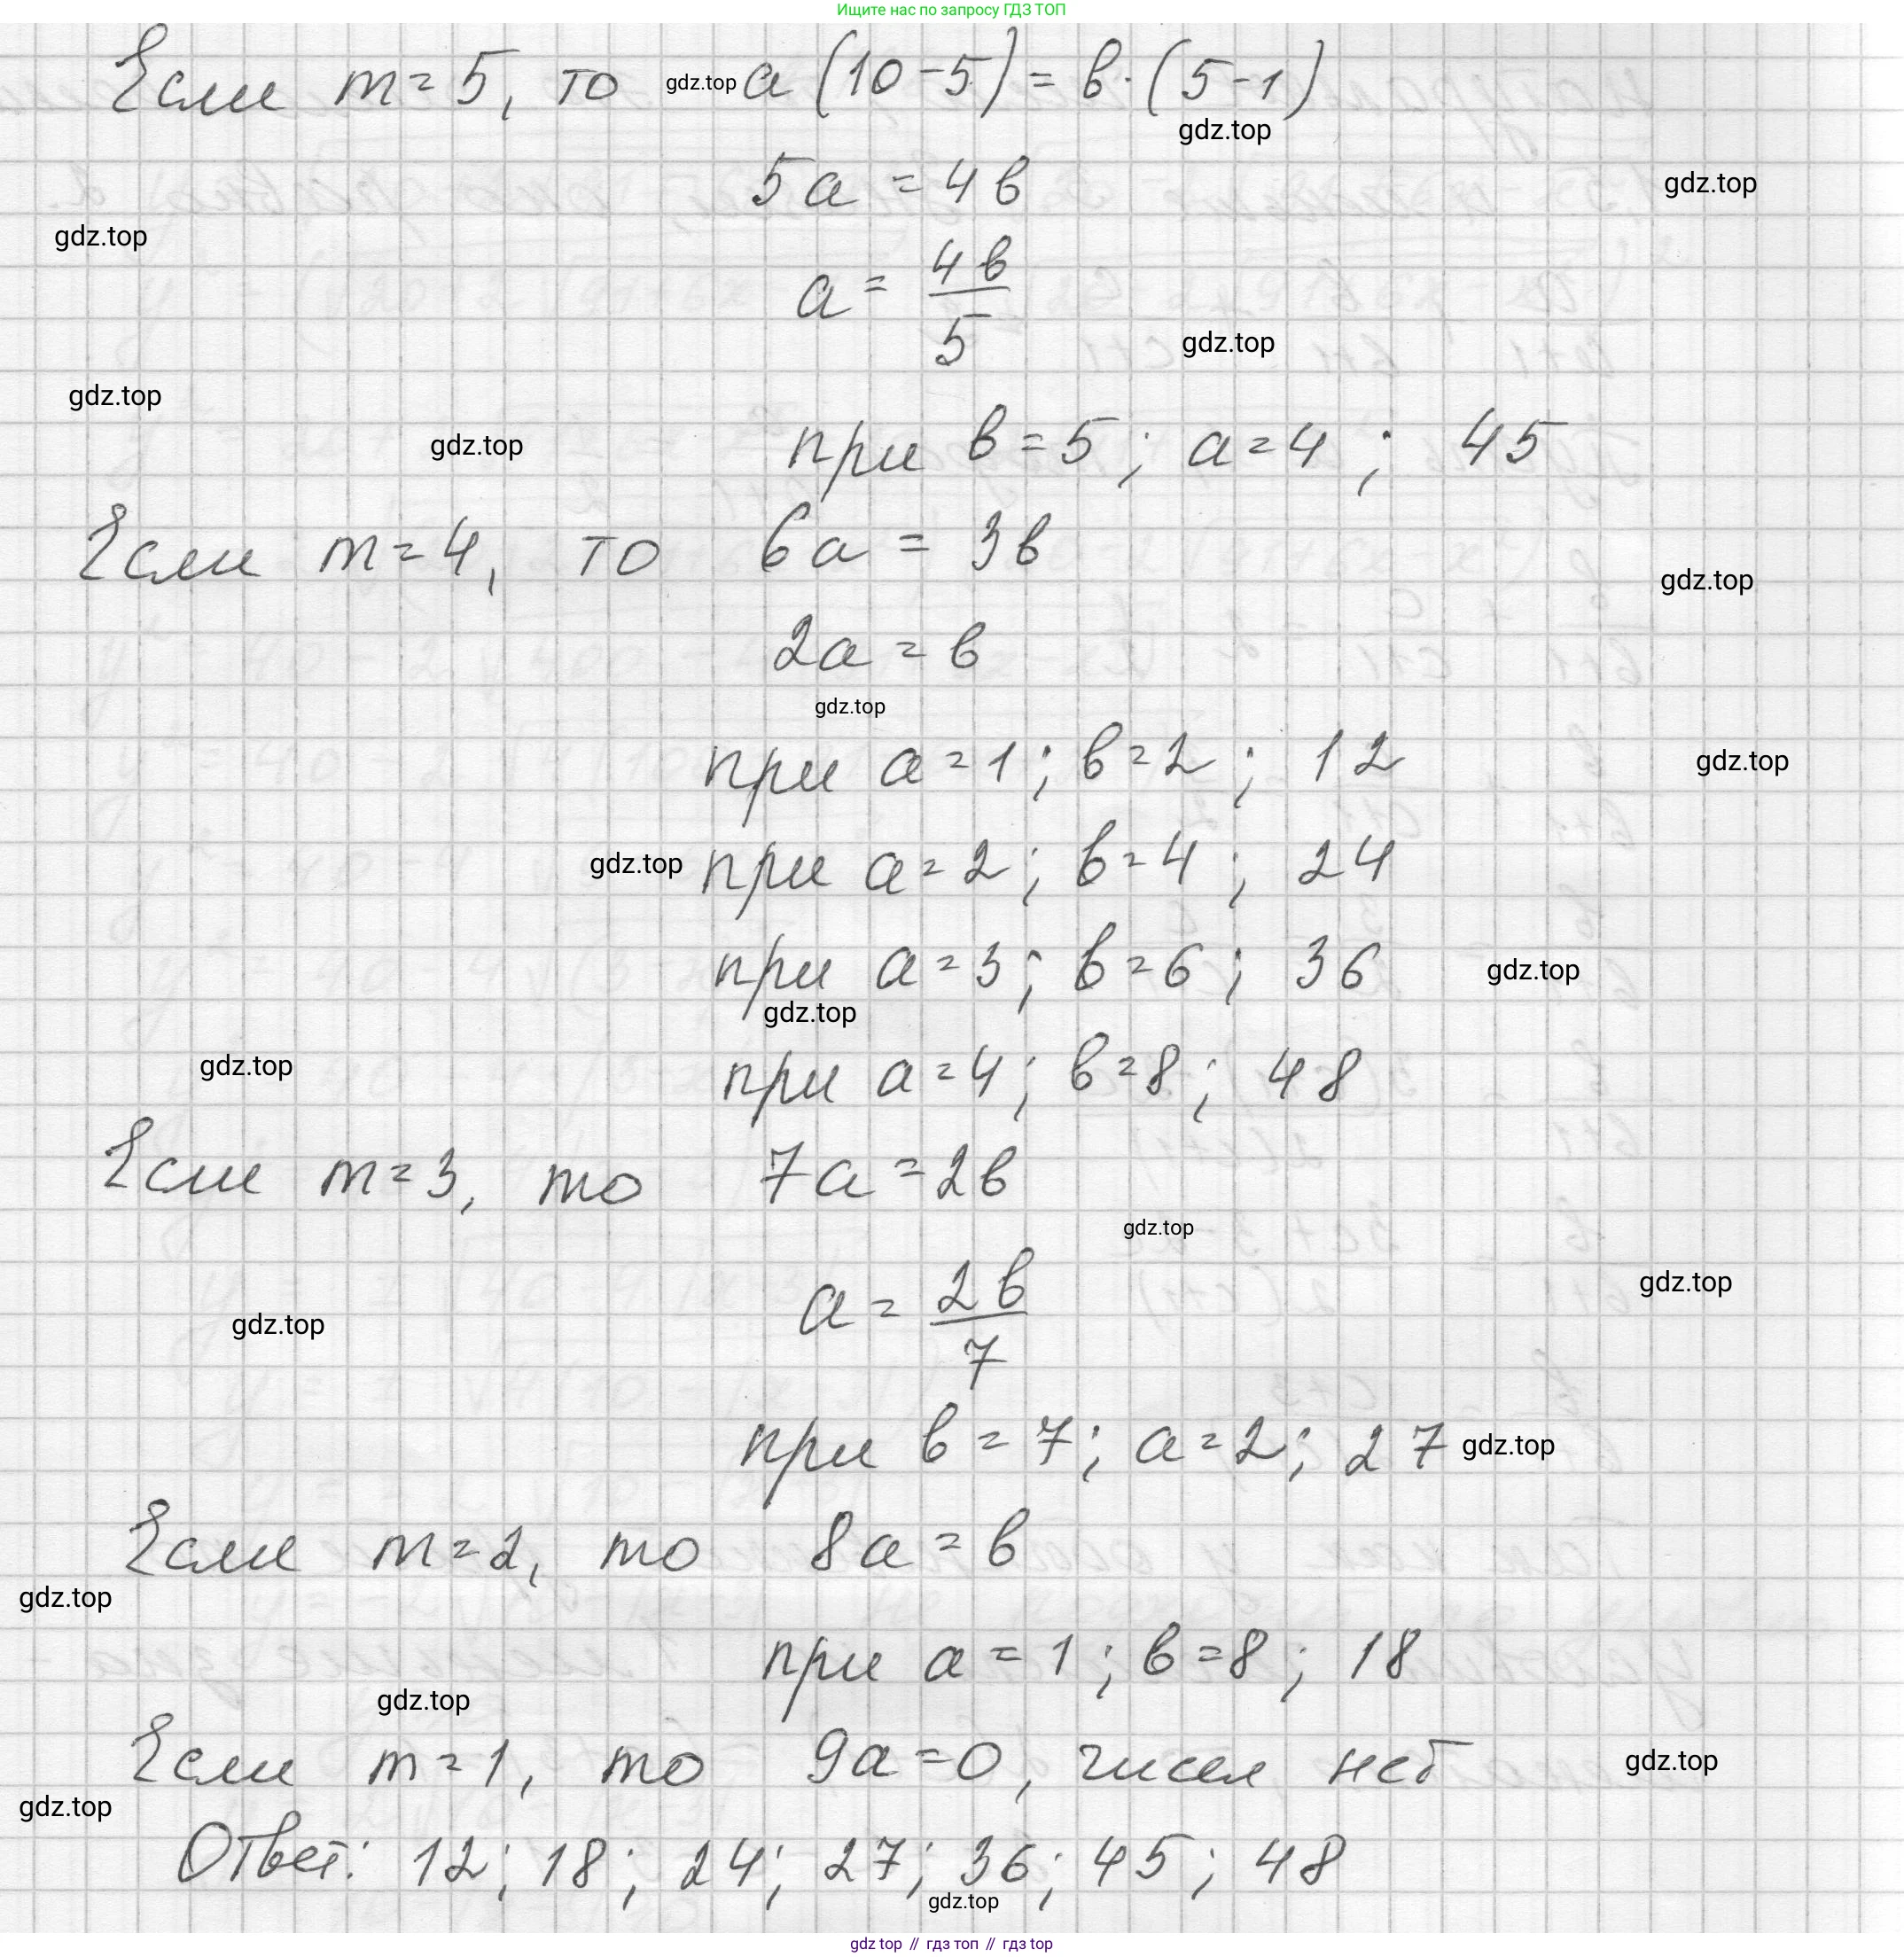 Ищите нас по запросу ГДЗ ТОП
Если m=5, то gdz.top a(10-5)=в·(5-1)
gdz.top
5a=4в
gdz.top
gdz.top
a=4в/5
gdz.top
gdz.top
gdz.top
при в=5; a=4; 45
Если m=4, то 6a=3в
gdz.top
2a=в
gdz.top
при a=1; в=2; 12
gdz.top
gdz.top при a=2; в=4; 24
при a=3; в=6; 36
gdz.top
gdz.top
gdz.top
при a=4; в=8; 48
Если m=3, то 7a=2в
gdz.top
gdz.top
a=2в/7
gdz.top
при в=7; a=2; 27 gdz.top
Если m=2, то 8a=в
gdz.top
при a=1; в=8; 18
gdz.top
Если m=1, то 9a=0, чисел нет
gdz.top
gdz.top
Ответ: 12; 18; 24; 27; 36; 45; 48
gdz.top
gdz top // гдз топ // гдз top